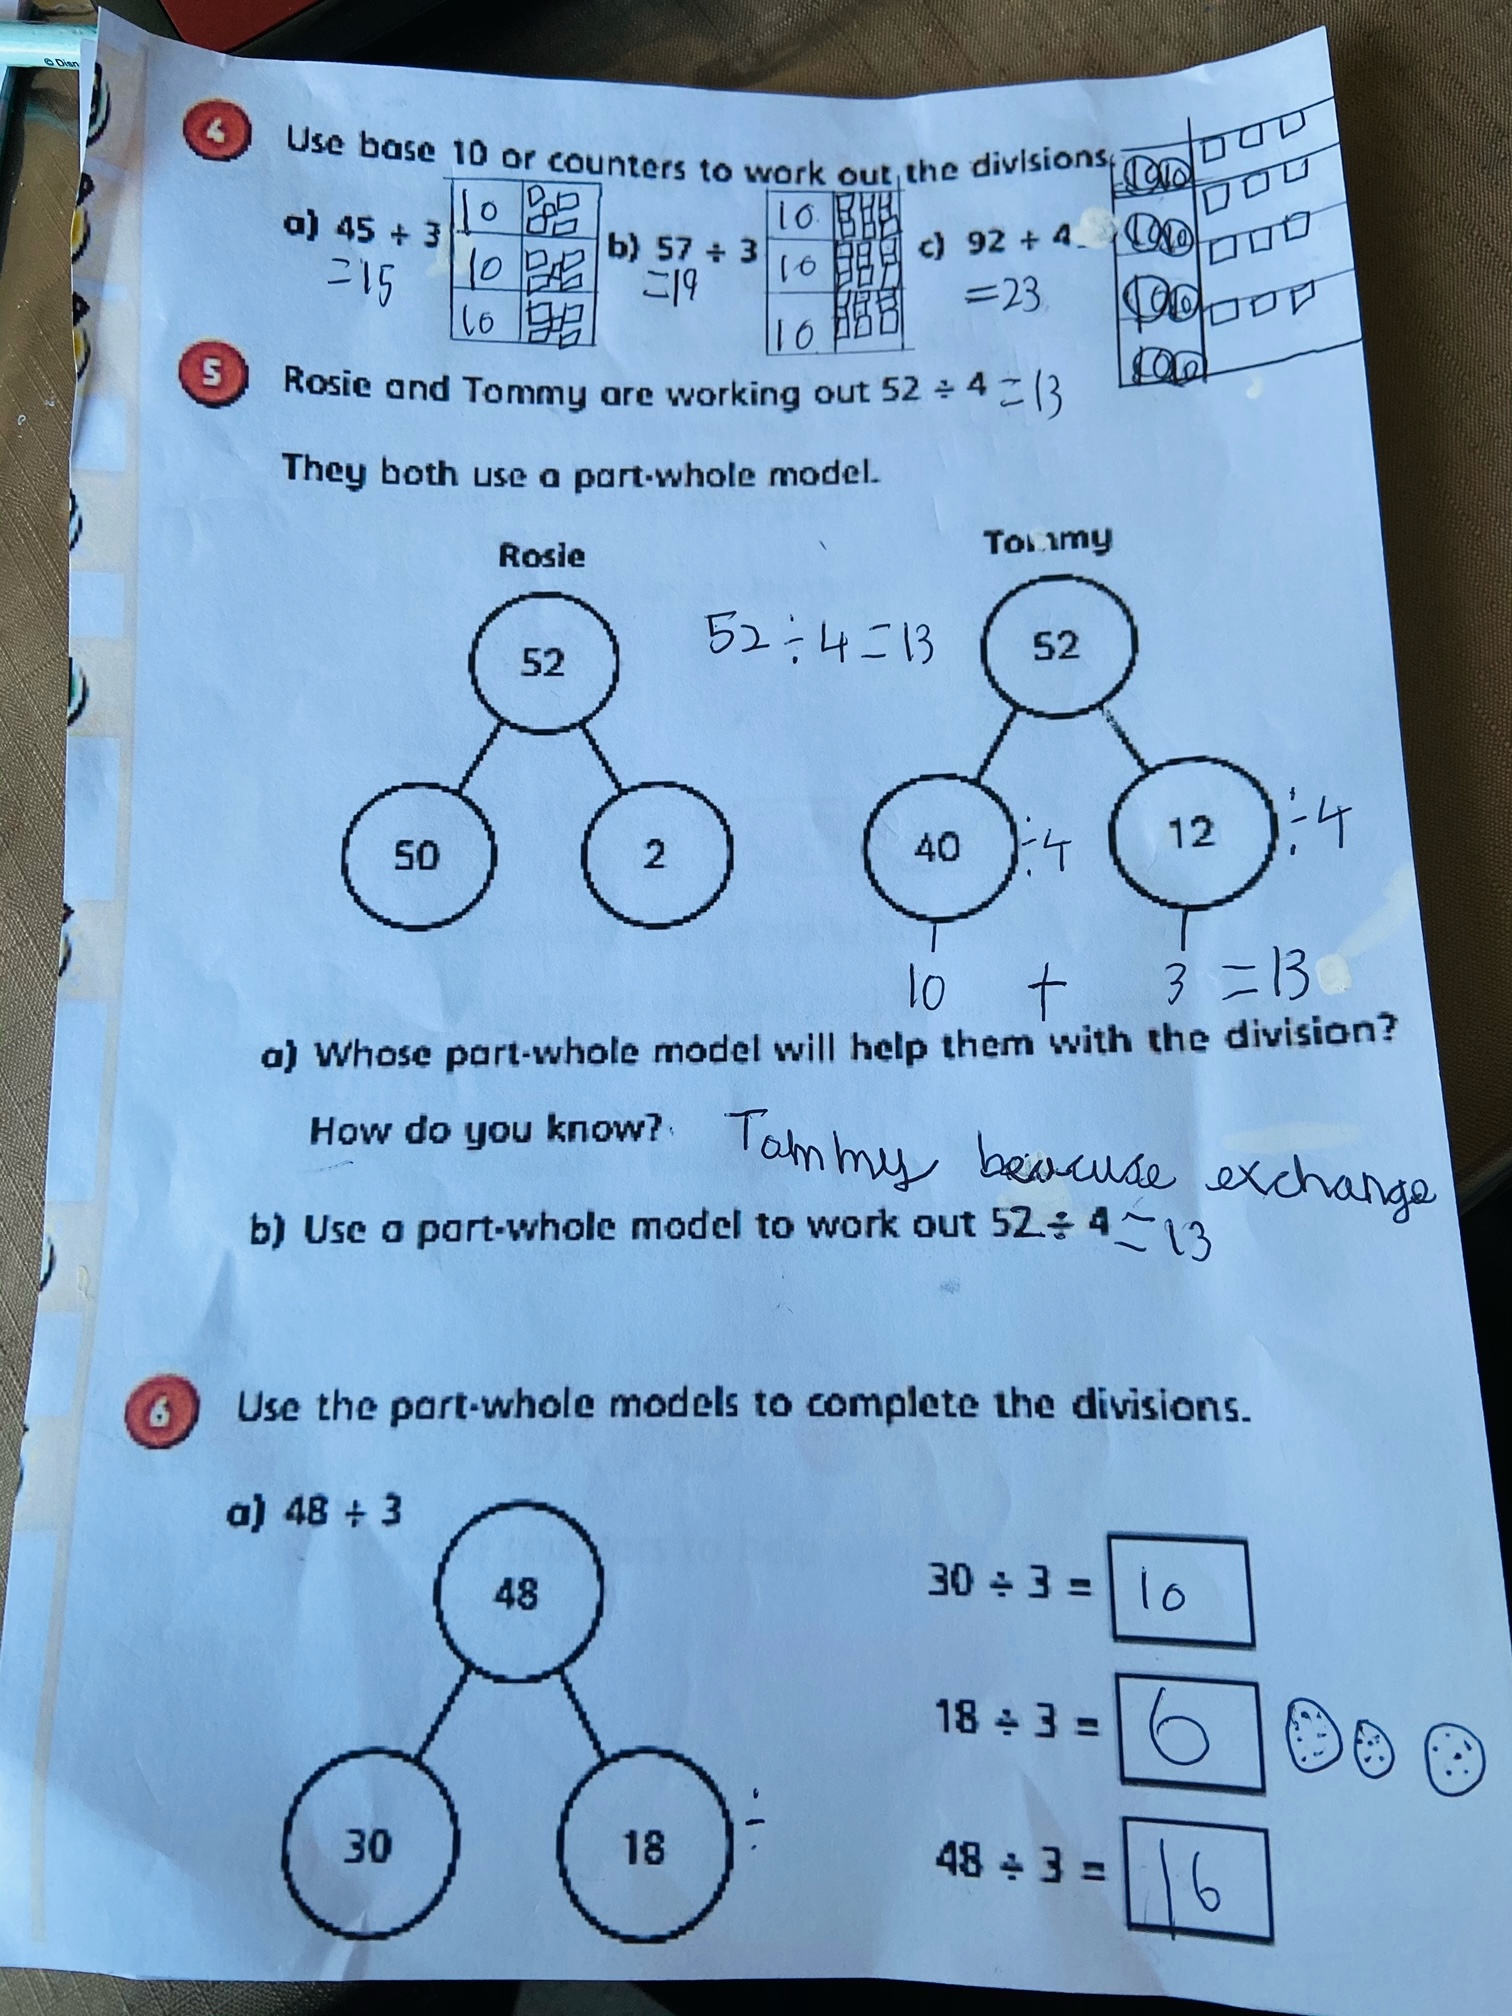 © Disn
4 Use base 10 or counters to work out the divisions.
a) 45 ÷ 3 b) 57 ÷ 3 c) 92 ÷ 4
=15 =19 =23
10 10 10
10 10 10
10 10 10
10
5 Rosie and Tommy are working out 52 ÷ 4 = 13
They both use a part-whole model.
Rosie Tommy
52 52 ÷ 4 = 13 52
50 2 40 ÷4 12 ÷4
10 + 3 = 13
a) Whose part-whole model will help them with the division?
How do you know? Tommy because exchange
b) Use a part-whole model to work out 52 ÷ 4 = 13
6 Use the part-whole models to complete the divisions.
a) 48 ÷ 3
48
30 18 ÷
30 ÷ 3 = 10
18 ÷ 3 = 6
48 ÷ 3 = 16